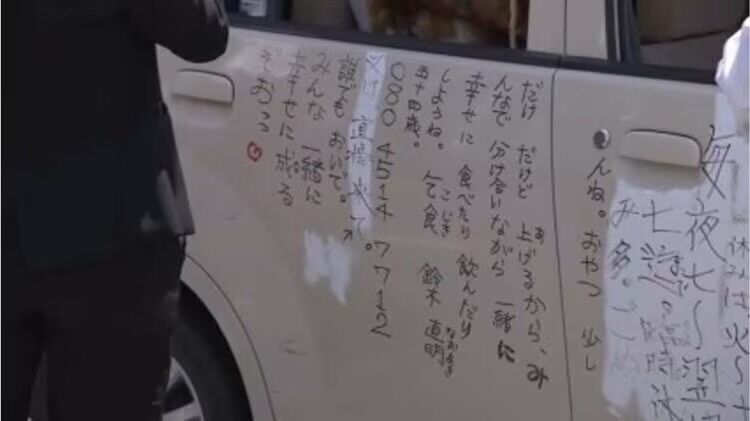 休みは火〜土
毎夜七〜翌
七
み多。ごめ
んね。おやつ 少し
だけ だけど 上げるから、み
んなで 分け合いながら 一緒に
幸せに 食べたり 飲んだり
しようね。
五十四歳。 乞食 鈴木 直明
こじき なおあき
080 4514 7712
又は 直接 来て。
誰でも おいで。
みんな 一緒に
幸せに 成る
ぞおっ